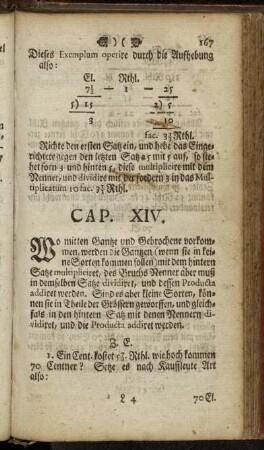 167
Dieses Exemplum operire durch die Aufhebung
also:
El. Rthl.
7½ — 1 — 25
5) 15 2) 5
3 10
fac. 3⅓ Rthl.
Richte den ersten Satz ein, und hebe das Einge-
richtete gegen den letzten Satz 25 mit 5 auf, so ste-
het forn 3 und hinten 5, diese multiplicire mit dem
Nenner, und dividire mit der fordern 3 in das Mul-
tiplicatum 10 fac. 3⅓ Rthl.
CAP. XIV.
Wo mitten Gantze und Gebrochene vorkom-
men, werden die Gantzen (wenn sie in klei-
ne Sorten kommen sollen) mit dem hintern
Satze multipliciret, des Bruchs Nenner aber muß
in demselben Satze dividiret, und dessen Producta
addiret werden. Sind es aber kleine Sorten, kön-
nen sie in Theile der Grössern geworffen, und gleich-
fals in den hintern Satz mit denen Nennern di-
vidiret, und die Producta addiret werden.
Z. E.
1. Ein Cent. kostet Rthl. wie hoch kommen
70 Centner? Setze es nach Kauffleute Art
also:
L 4 70 El.